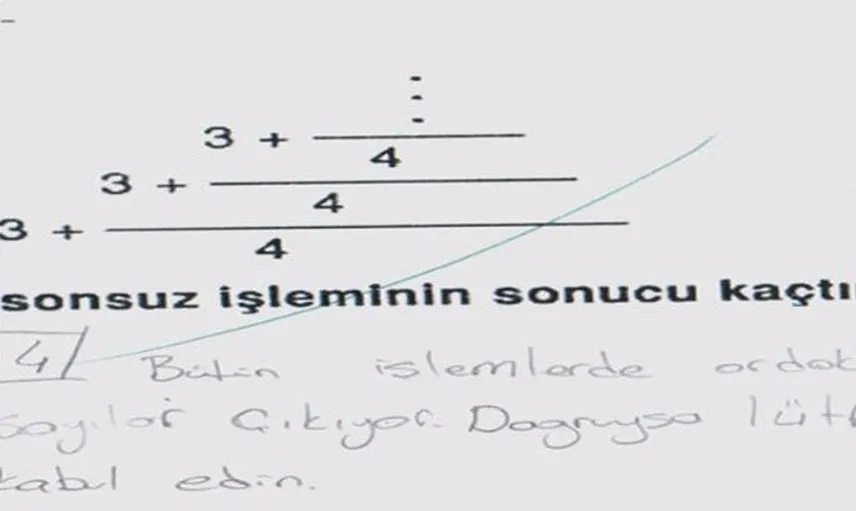 3 +
4
3 +
4
3 +
4
sonsuz işleminin sonucu kaçtı
4
Bütün işlemlerde ordak
sayılar çıkıyor. Dogruysa lütf
kabul edin.